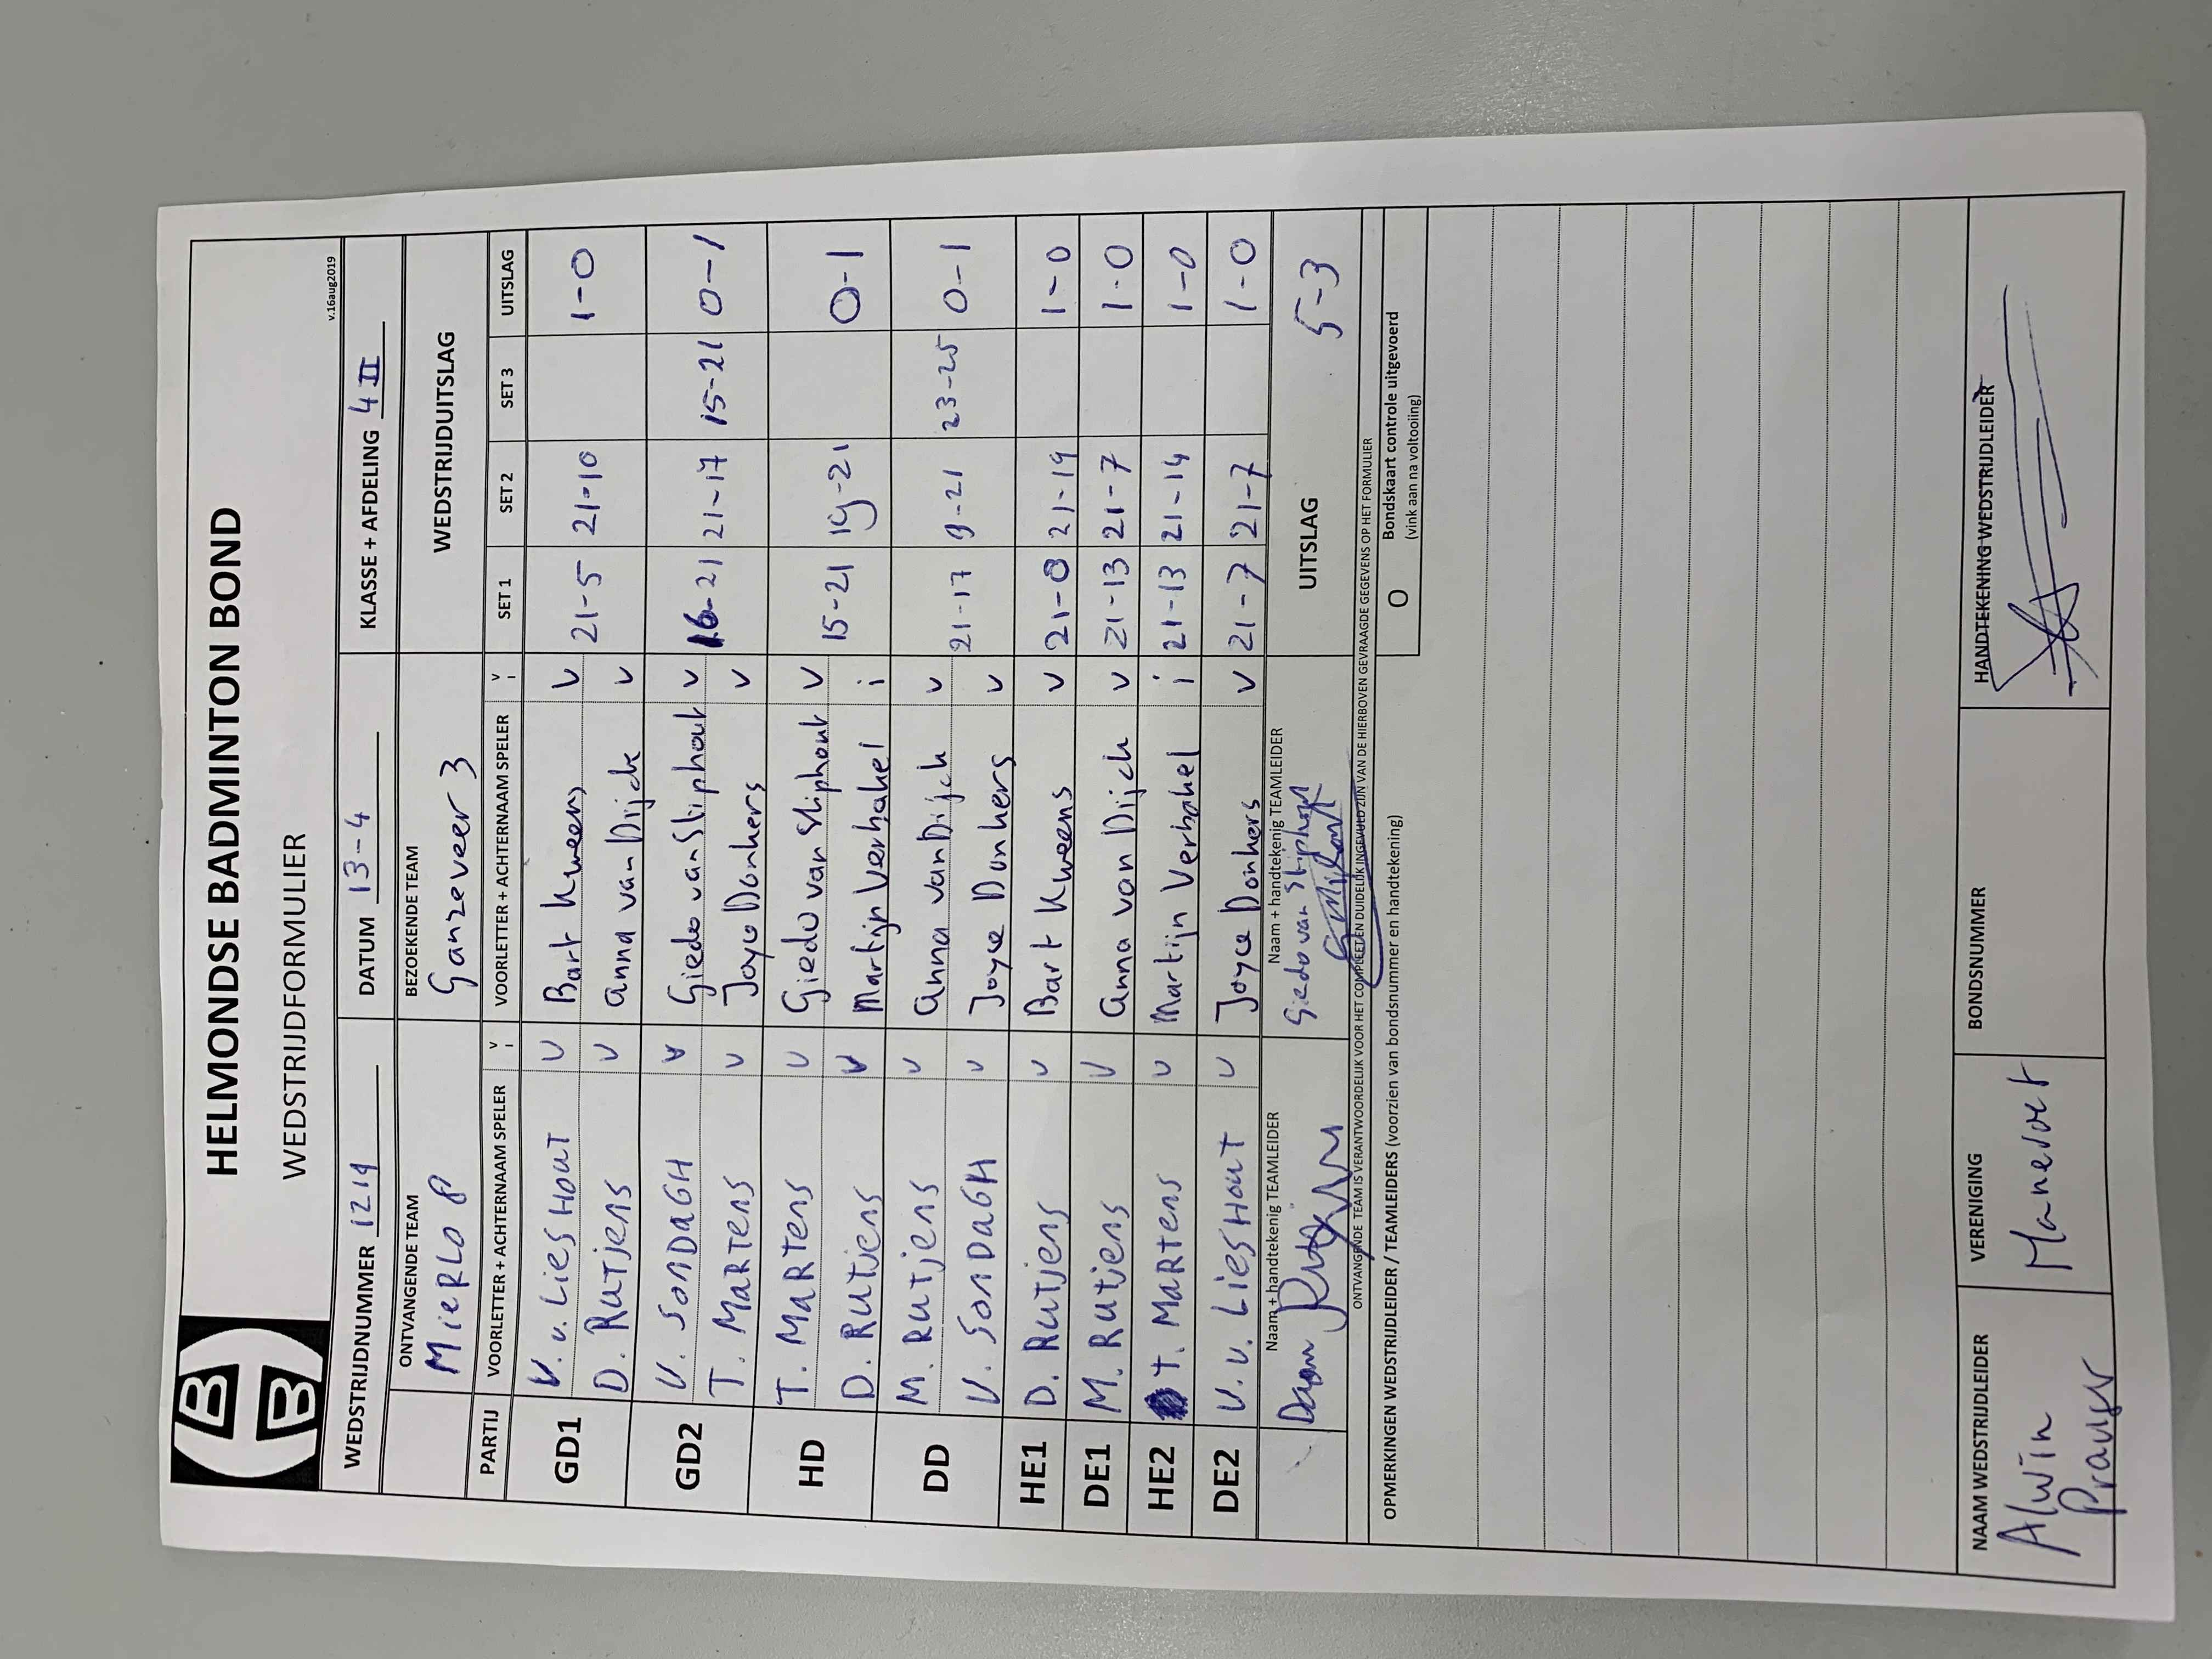 HELMONDSE BADMINTON BOND
WEDSTRIJDFORMULIER
v.16aug2019
WEDSTRIJDNUMMER 1219 DATUM 13-4 KLASSE + AFDELING 4 II
ONTVANGENDE TEAM BEZOEKENDE TEAM WEDSTRIJDUITSLAG
MIERLO 8 Ganzeveer 3
PARTIJ VOORLETTER + ACHTERNAAM SPELER V I VOORLETTER + ACHTERNAAM SPELER V I SET 1 SET 2 SET 3 UITSLAG
GD1 V. v. LiesHout v Bart Kweens v 21-5 21-10 1-0
D. Rutjens v anna van Dijck v
GD2 V. SonDaGH v Giedo van Sliphout v 16-21 21-17 15-21 0-1
T. MaRTens v Joyce Donkers v
HD T. MaRTens v Giedo van Sliphout v 15-21 19-21 0-1
D. Rutjens v Martijn Verhakel i
DD M. Rutjens v anna van Dijck v 21-17 9-21 23-25 0-1
V. SonDaGH v Joyce Donkers v
HE1 D. Rutjens v Bart Kweens v 21-8 21-19 1-0
DE1 M. Rutjens v anna van Dijck v 21-13 21-7 1-0
HE2 T. MaRTens v Martijn Verhakel i 21-13 21-14 1-0
DE2 V. v. LiesHout v Joyce Donkers v 21-7 21-7 1-0
Naam + handtekenig TEAMLEIDER Naam + handtekenig TEAMLEIDER UITSLAG 5-3
Daan Giedo van Sliphout
ONTVANGENDE TEAM IS VERANTWOORDELIJK VOOR HET COMPLEET EN DUIDELIJK INGEVULD ZIJN VAN DE HIERBOVEN GEVRAAGDE GEGEVENS OP HET FORMULIER
OPMERKINGEN WEDSTRIJDLEIDER / TEAMLEIDERS (voorzien van bondsnummer en handtekening) O Bondskaart controle uitgevoerd
(vink aan na voltooiing)
NAAM WEDSTRIJDLEIDER VERENIGING BONDSNUMMER HANDTEKENING WEDSTRIJDLEIDER
Alwin